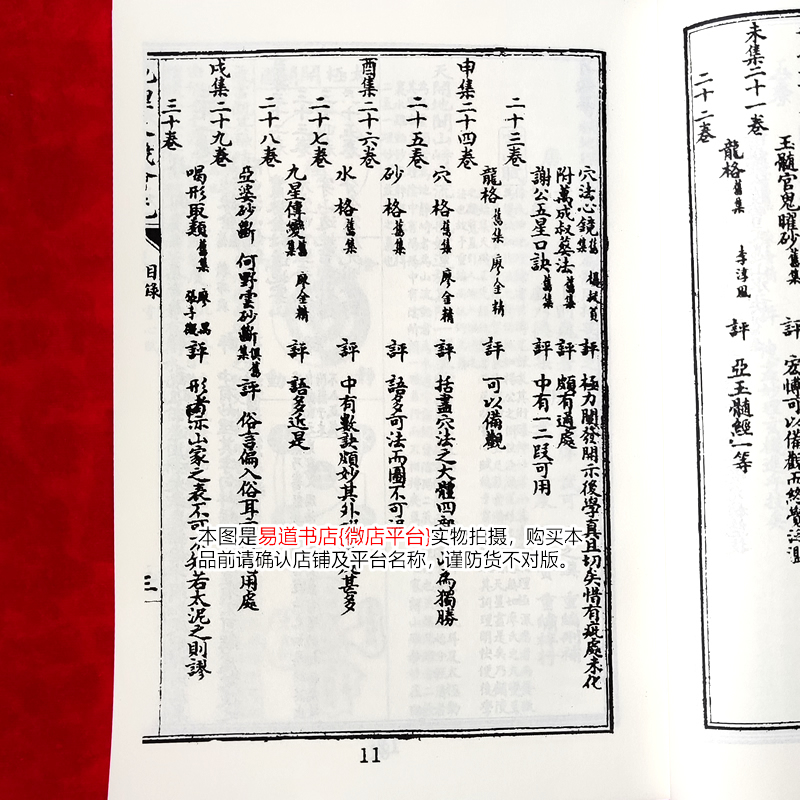 未集二十一卷
玉髓官鬼曜砂舊集 評 宏博可以備觀而終覺泛濫
二十二卷
龍格舊集 李淳風 評 亞玉髓經一等
穴法心鏡舊集 楊叔貢 評 極力闡發開示後學真且切矣惜有疵處未化
附萬成叔葬法舊集 評 頗有適處
謝公五星口訣舊集 評 中有一二段可用
二十三卷
龍格舊集 廖金精 評 可以備觀
申集二十四卷
穴格舊集 廖金精 評 括盡穴法之大體四 以為獨勝
二十五卷
砂格舊集 評 語多可法而圖不可
酉集二十六卷
水格舊集 評 中有數訣頗妙其外 甚多
二十七卷
九星傳變舊集 廖金精 評 語多近是
二十八卷
亞婆砂斷 何野雲砂斷俱舊集 評 俗言偏入俗耳 用處
戌集二十九卷
喝形取類舊集 廖禹 張子微 評 形者亦山家之表不可 若太泥之則謬
三十卷
目錄
三
11
本图是易道书店{微店平台}实物拍摄，购买本
品前请确认店铺及平台名称，谨防货不对版。